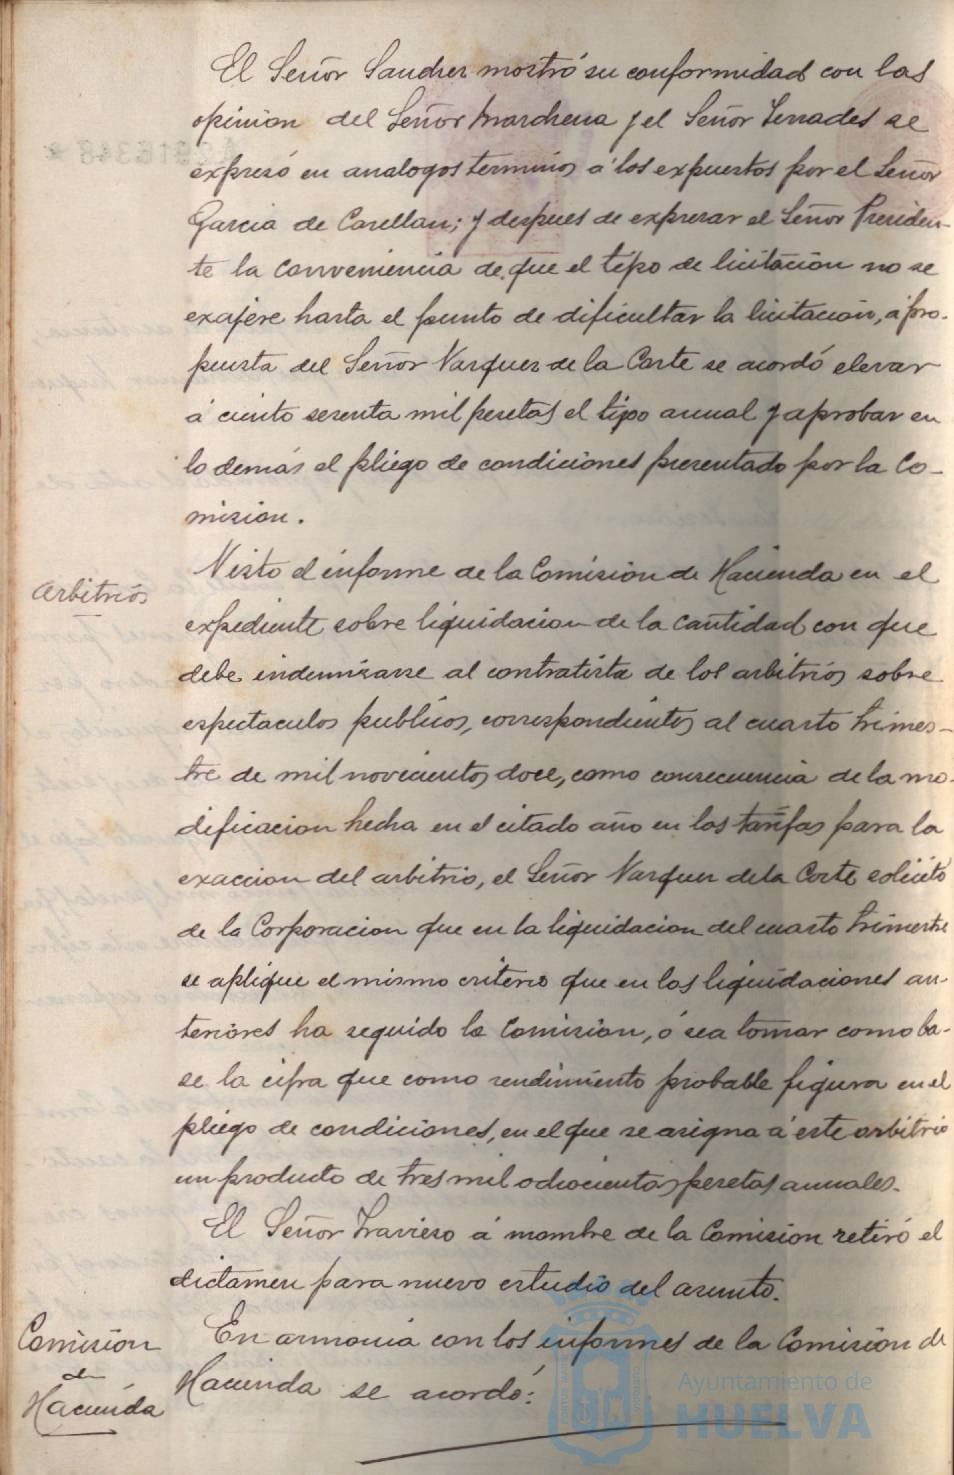 El Señor Sanches mostró su conformidad con las
opinion del Señor Marchena y el Señor Terrades se
expresó en analogos terminos á los expuestos por el Señor
Garcia de Casellan; y despues de expresar el Señor Presiden-
te la conveniencia de que el tipo de licitación no se
exajere hasta el punto de dificultar la licitación, á pro-
puesta del Señor Vasquez de la Corte se acordó elevar
á ciento sesenta mil pesetas el tipo anual y aprobar en
lo demás el pliego de condiciones presentado por la Co-
mision.
Arbitrios
Visto el informe de la Comision de Hacienda en el
expediente sobre liquidacion de la cantidad con que
debe indemnizarse al contratista de los arbitrios sobre
espectaculos publicos, correspondientes al cuarto trimes-
tre de mil novecientos doce, como consecuencia de la mo-
dificacion hecha en el citado año en las tarifas para la
exaccion del arbitrio, el Señor Vasquez de la Corte solicitó
de la Corporacion que en la liquidacion del cuarto trimestre
se aplique el mismo criterio que en las liquidaciones an-
teriores ha seguido la Comision, ó sea tomar como ba-
se la cifra que como rendimiento probable figura en el
pliego de condiciones, en el que se asigna á este arbitrio
un producto de tres mil ochocientas pesetas anuales.
El Señor Travieso á nombre de la Comision retiró el
dictamen para nuevo estudio del asunto.
Comision
de
Hacienda
En armonia con los informes de la Comision de
Hacienda se acordó:
Ayuntamiento de
HUELVA